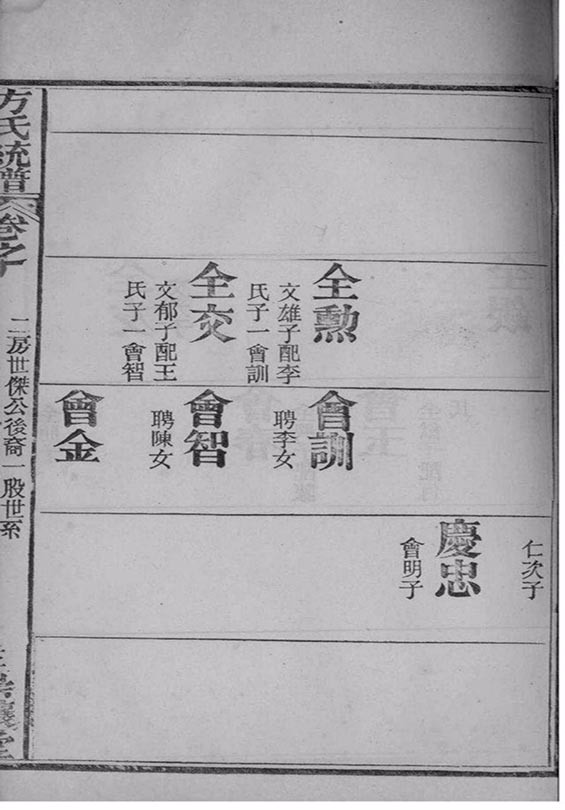 仁次子
慶忠
會明子
全勲
文雄子配李
氏子一會訓
會訓
聘李女
全交
文郁子配王
氏子一會智
會智
聘陳女
會金
方氏統譜
卷之十
二房世傑公後裔一股世系